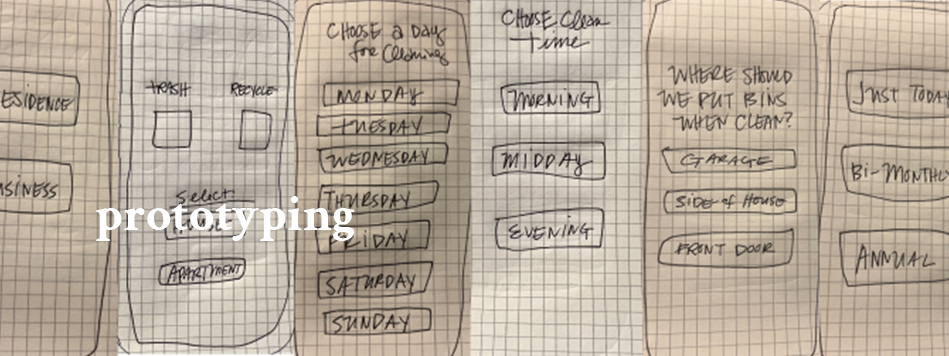 ESIDENCE
SINESS
TRASH
RECYCLE
Select
APARTMENT
prototyping
CHOOSE a Day
for Cleaning
MONDAY
TUESDAY
WEDNESDAY
THURSDAY
FRIDAY
SATURDAY
SUNDAY
CHOOSE Clean
time
MORNING
MIDDAY
EVENING
WHERE SHOULD
WE PUT BINS
WHEN CLEAN?
GARAGE
SIDE of HOUSE
FRONT DOOR
JUST TODAY
Bi-MONTHLY
ANNUAL